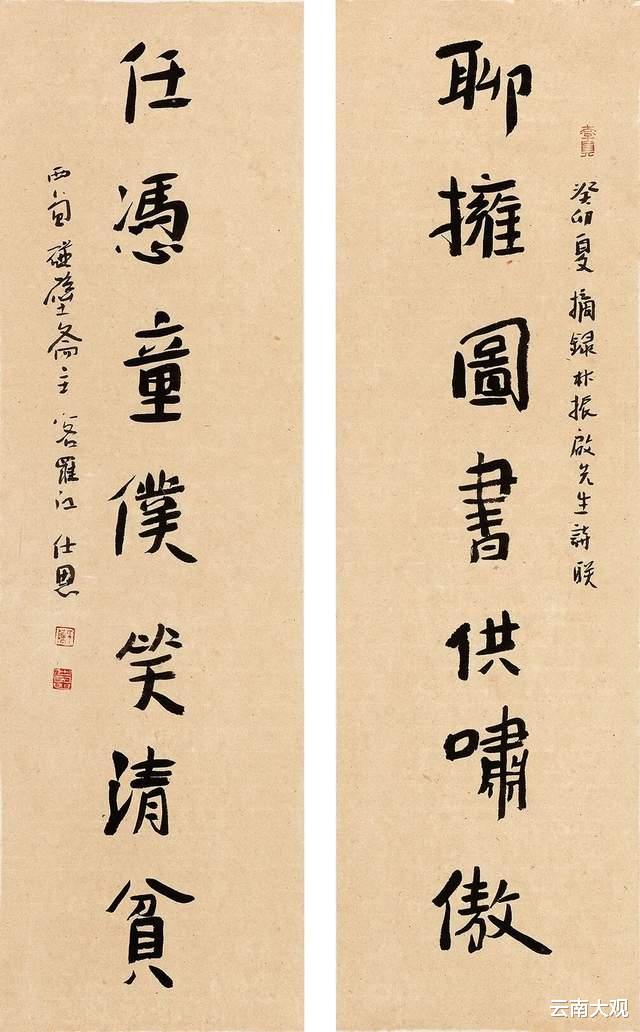 聊擁圖書供嘯傲
癸卯夏摘録 振啟先生詩联
任憑童僕笑清貧
西蜀碰壁斋主客羅江仕恩
云南大观